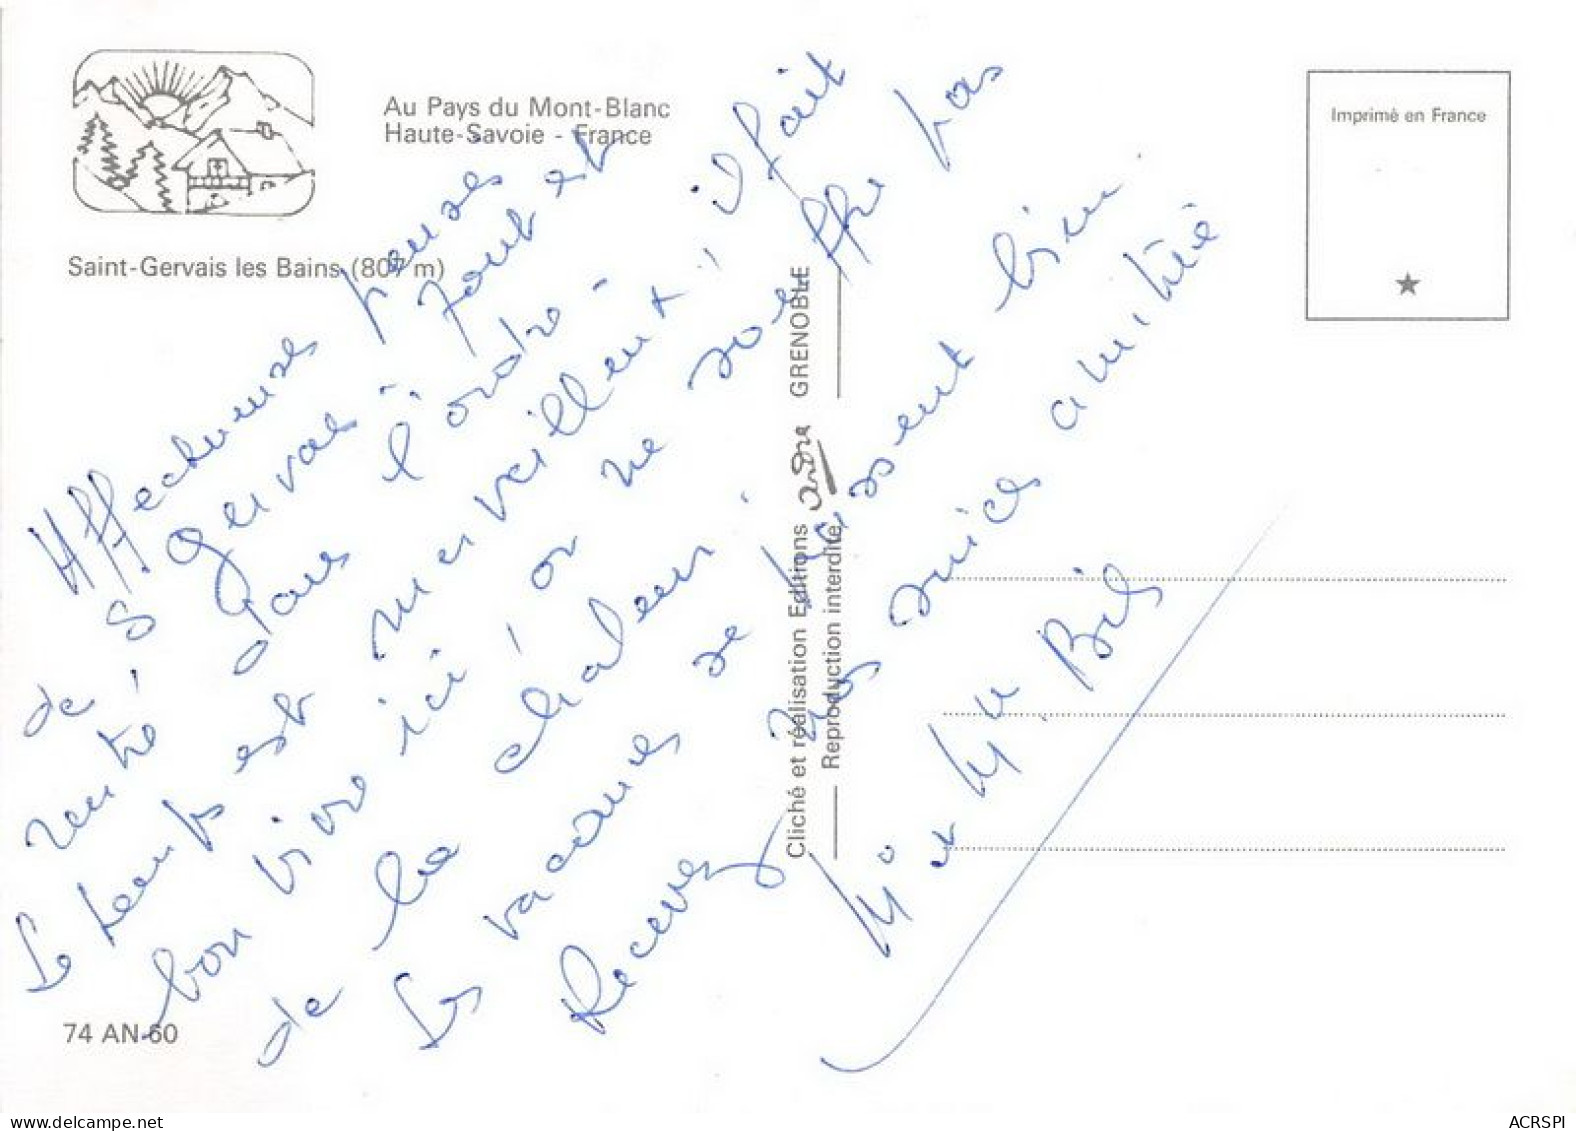 Au Pays du Mont-Blanc
Haute-Savoie - France
Saint-Gervais les Bains (807 m)
Imprimé en France
Affectueuses pensées
de S. Gervais. Tout est
rentré dans l'ordre -
Le temps est merveilleux, il fait
bon vivre ici, on ne souffre pas
de la chaleur.
Les vacances se passent bien.
Recevez nos amicales amitiés
Mr et Mme
Cliché et réalisation Editions andre GRENOBLE
Reproduction interdite
74 AN 60
delcampe.net
ACRSPI